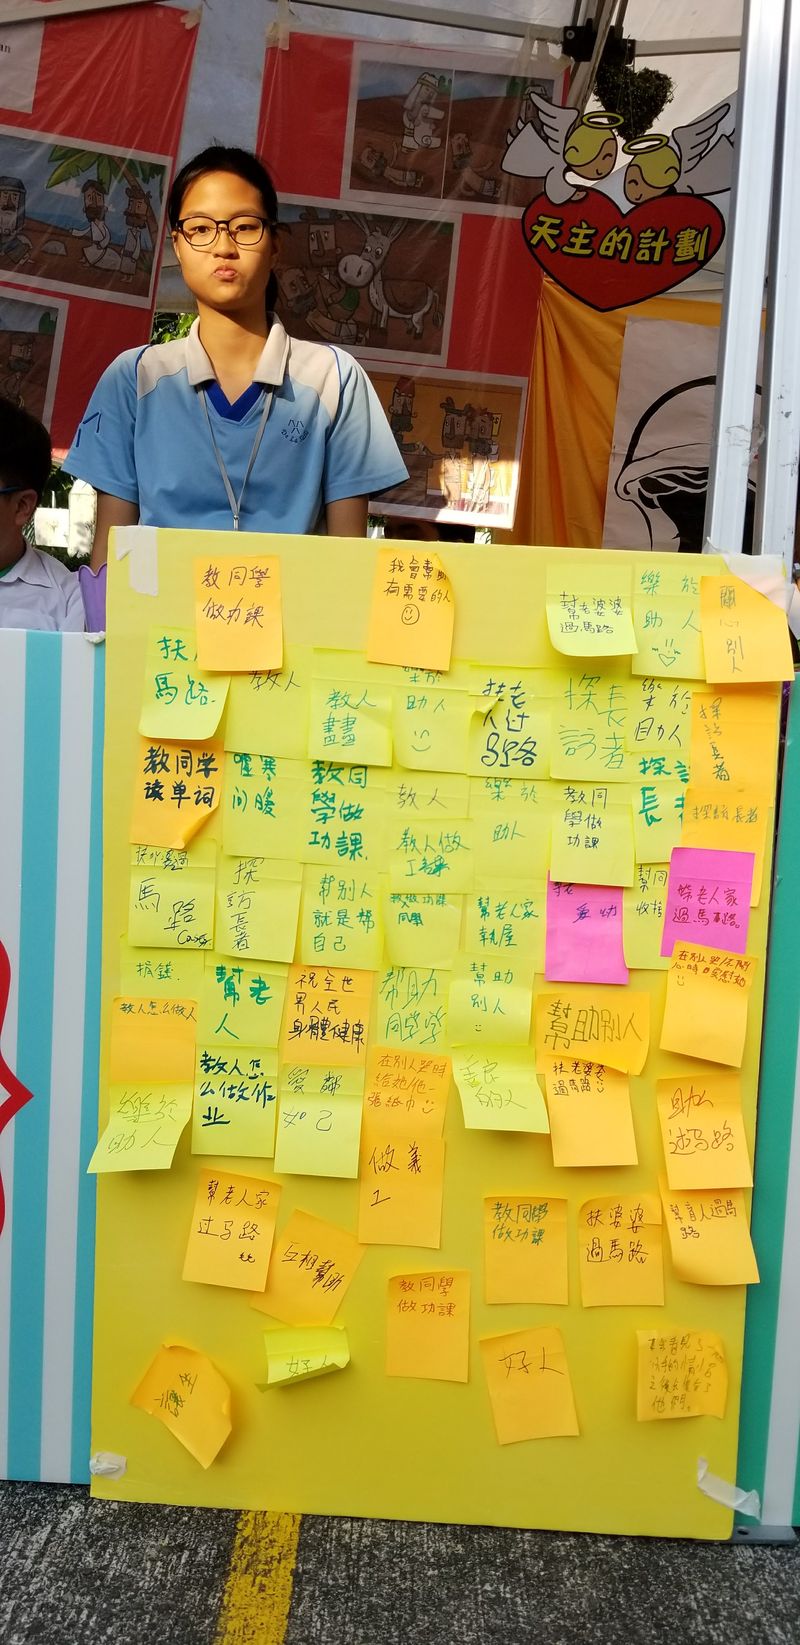 天主的計劃
教同學
做功課
我會幫助
有需要的人
幫老婆婆
過馬路
樂於
助人
關心
別人
扶
馬路
教人
教人
畫畫
助人
扶老
人过
马路
探長
訪者
樂於
助人
探訪長者
教同学
读单词
噓寒
问暖
教同
學做
功課
教人
教人做
工課
樂於
助人
教同
學做
功課
探訪
長者
探訪長者
馬路
探訪長者
幫別人
就是幫
自己
教做功課
同學
幫老人家
執屋
愛幼
幫同
收拾
老人家
過馬路。
捐錢
幫老
人
祝全世
界人民
身體健康
帮助
同学
幫助
別人
幫助別人
教人怎么做人
樂於
助人
教人怎
么做作
业
愛鄰
如己
在别人哭時
給她/他一
張紙巾
善良
的人
扶老婆婆
過馬路
过马路
幫老人家
过马路
互相幫助
做義
工
教同學
做功課
教同學
做功課
扶婆婆
過馬路
幫盲人過馬
路
好人
好人
讓坐
他們。